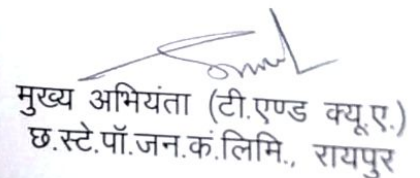 मुख्य अभियंता (टी.एण्ड क्यू.ए.)
छ.स्टे.पॉ.जन.कं.लिमि., रायपुर